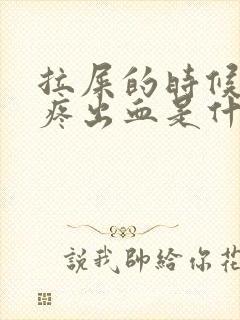 拉屎的時候
疼出血是什
說我帥給你花